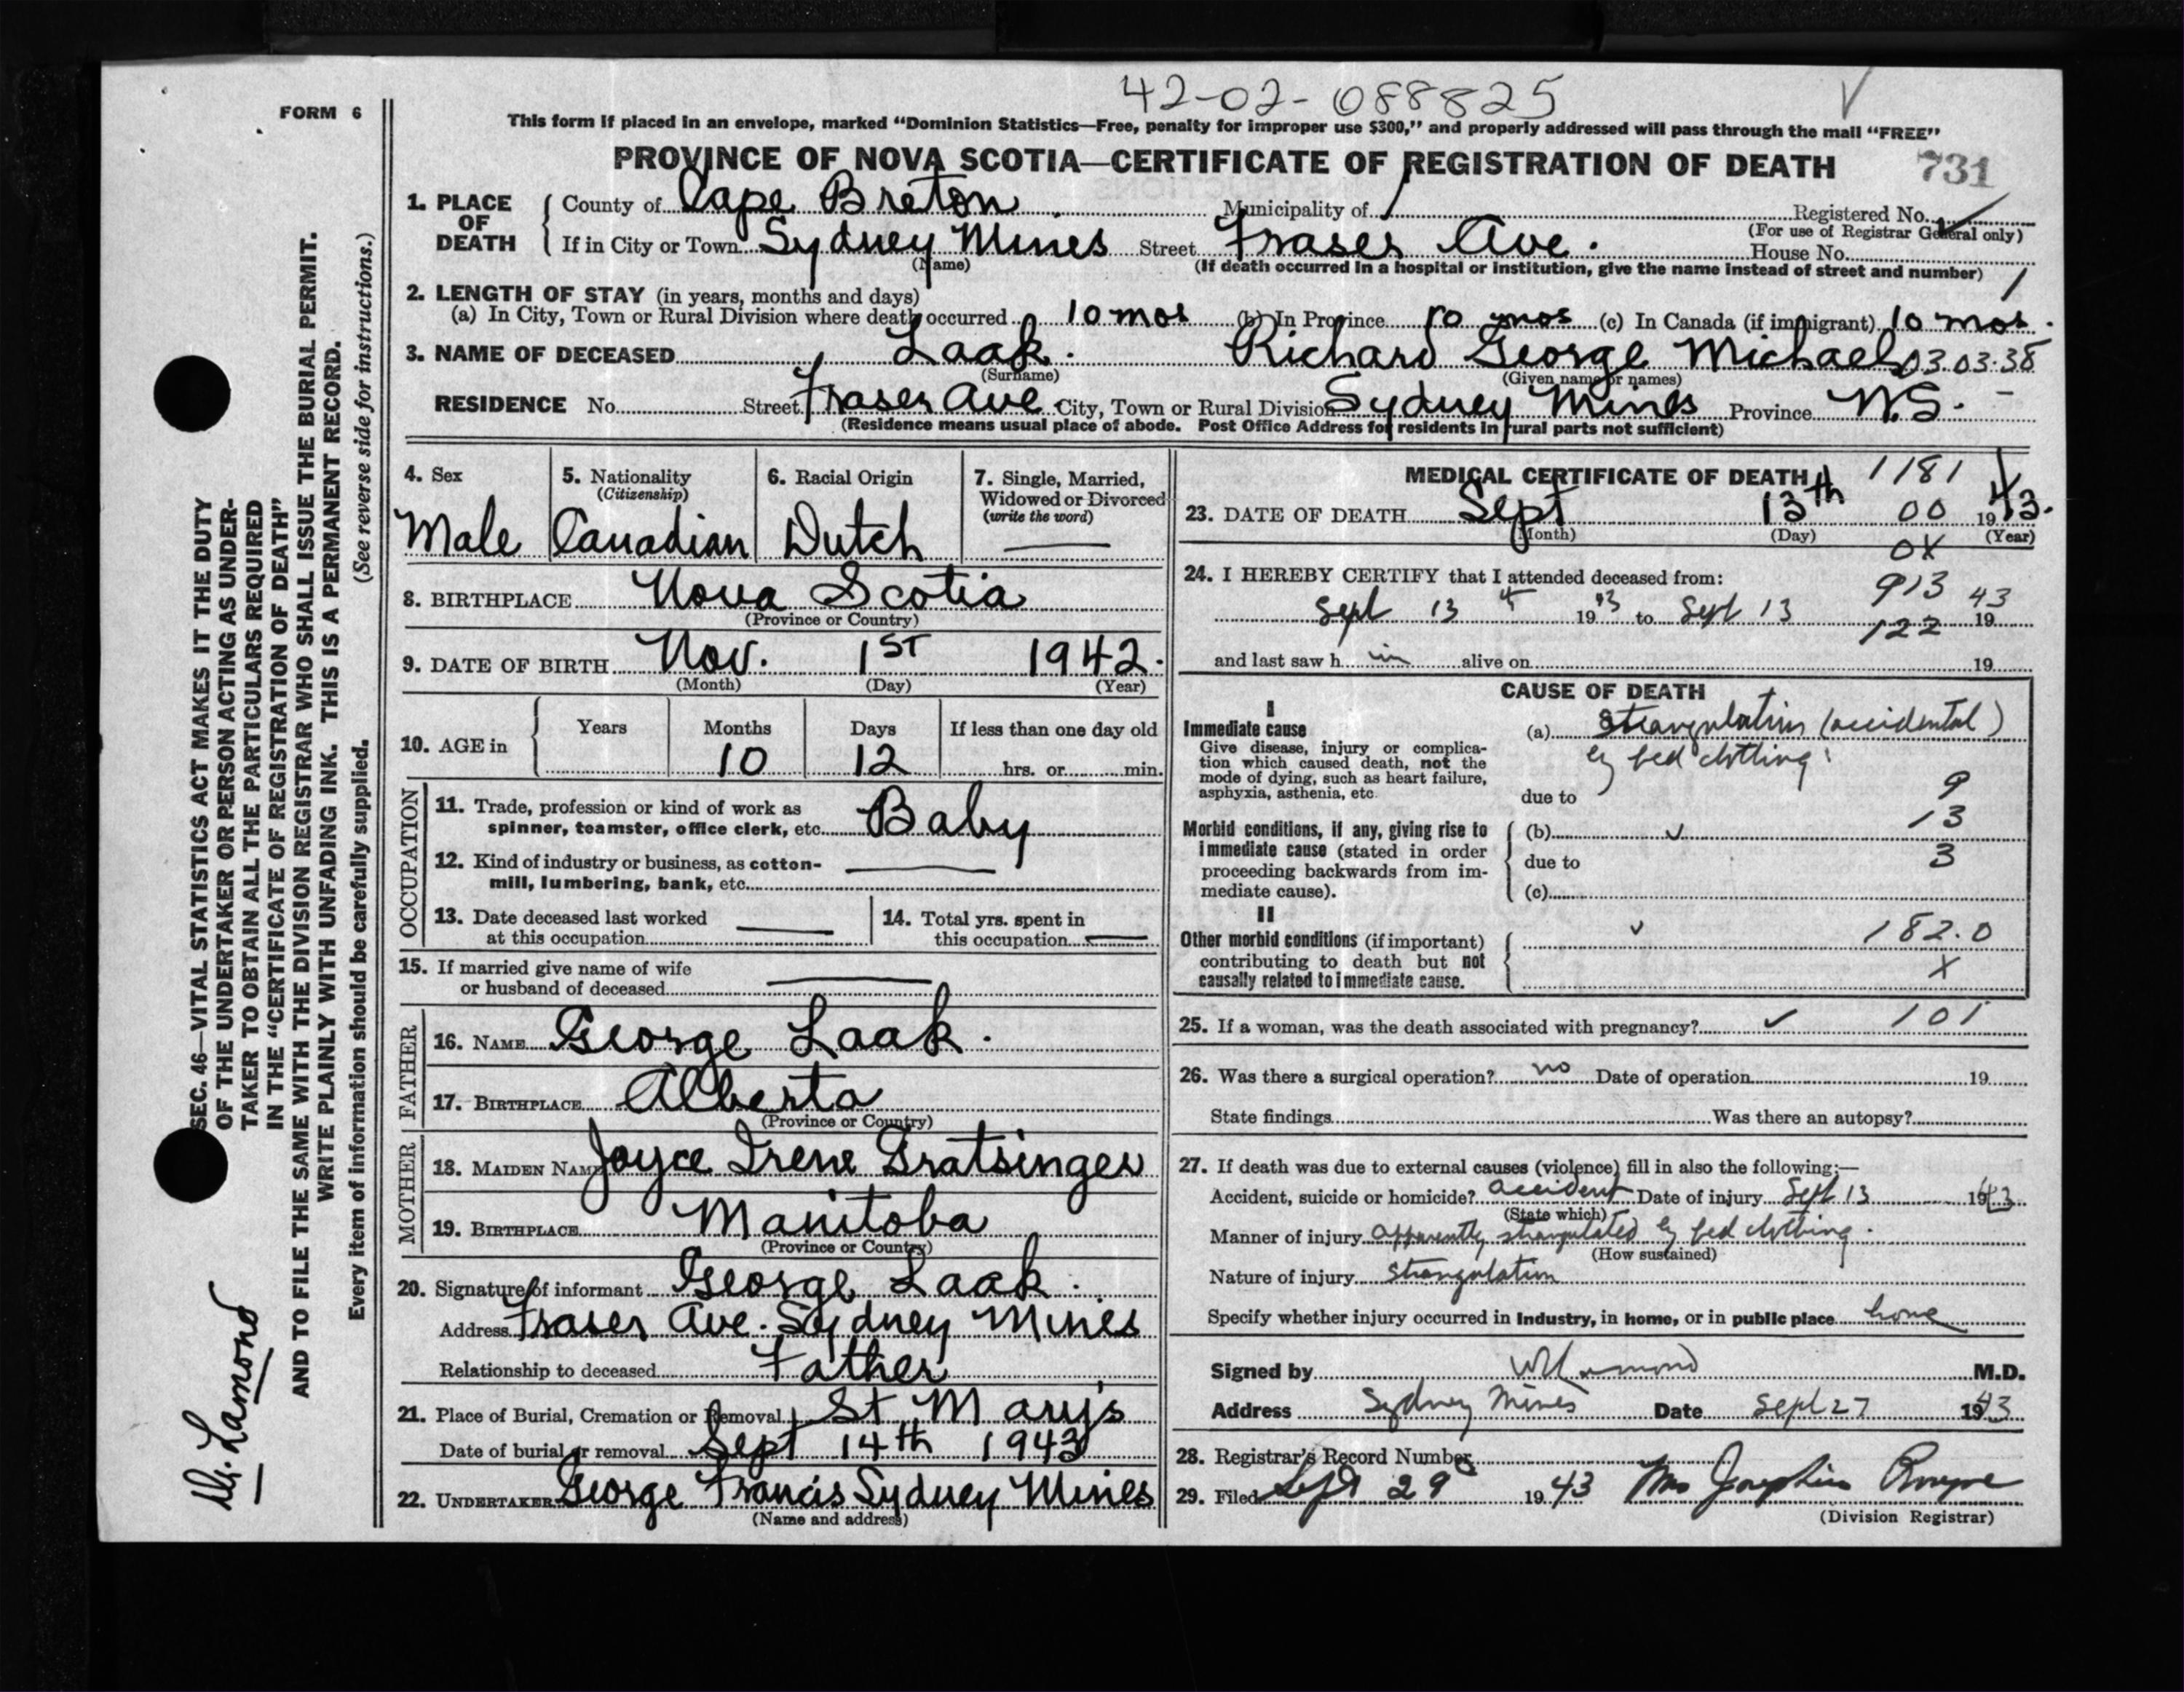 42-02-088825
FORM 6
This form if placed in an envelope, marked "Dominion Statistics—Free, penalty for improper use $300," and properly addressed will pass through the mail "FREE"
PROVINCE OF NOVA SCOTIA—CERTIFICATE OF REGISTRATION OF DEATH 731
1. PLACE OF DEATH County of Cape Breton Municipality of Registered No.
(For use of Registrar General only)
If in City or Town Sydney Mines Street Fraser Ave. House No.
(Name) (If death occurred in a hospital or institution, give the name instead of street and number)
2. LENGTH OF STAY (in years, months and days)
(a) In City, Town or Rural Division where death occurred 10 mos (b) In Province 10 mos (c) In Canada (if immigrant) 10 mos.
3. NAME OF DECEASED Laak. Richard George Michael 03.03.38
(Surname) (Given name or names)
RESIDENCE No. Street Fraser Ave City, Town or Rural Division Sydney Mines Province N.S.
(Residence means usual place of abode. Post Office Address for residents in rural parts not sufficient)
4. Sex Male
5. Nationality (Citizenship) Canadian
6. Racial Origin Dutch
7. Single, Married, Widowed or Divorced (write the word) —
8. BIRTHPLACE Nova Scotia
(Province or Country)
9. DATE OF BIRTH Nov. 1ST 1942.
(Month) (Day) (Year)
10. AGE in Years Months Days If less than one day old
10 12 hrs. or min.
OCCUPATION
11. Trade, profession or kind of work as spinner, teamster, office clerk, etc. Baby
12. Kind of industry or business, as cotton-mill, lumbering, bank, etc. —
13. Date deceased last worked at this occupation —
14. Total yrs. spent in this occupation —
15. If married give name of wife or husband of deceased —
FATHER
16. NAME George Laak.
17. BIRTHPLACE Alberta
(Province or Country)
MOTHER
18. MAIDEN NAME Joyce Irene Gratsinger
19. BIRTHPLACE Manitoba
(Province or Country)
20. Signature of informant George Laak.
Address Fraser Ave. Sydney Mines
Relationship to deceased Father
21. Place of Burial, Cremation or Removal St. Mary's
Date of burial or removal Sept 14th 1943
22. UNDERTAKER George Francis Sydney Mines
(Name and address)
MEDICAL CERTIFICATE OF DEATH 1181
23. DATE OF DEATH Sept 13th 00 1943.
(Month) (Day) 0X (Year)
24. I HEREBY CERTIFY that I attended deceased from: 913
Sept 13th 1943 to Sept 13 1943
122
and last saw h im alive on 19
CAUSE OF DEATH
I
Immediate cause
Give disease, injury or complication which caused death, not the mode of dying, such as heart failure, asphyxia, asthenia, etc.
(a) Strangulation (accidental)
by bed clothing.
due to 9
Morbid conditions, if any, giving rise to immediate cause (stated in order proceeding backwards from immediate cause).
(b) 13
due to 3
(c)
II
Other morbid conditions (if important) contributing to death but not causally related to immediate cause.
182.0
X
25. If a woman, was the death associated with pregnancy? 101
26. Was there a surgical operation? no Date of operation 19
State findings Was there an autopsy?
27. If death was due to external causes (violence) fill in also the following:—
Accident, suicide or homicide? accident Date of injury Sept 13 1943
(State which)
Manner of injury apparently strangulated by bed clothing.
(How sustained)
Nature of injury Strangulation
Specify whether injury occurred in industry, in home, or in public place home
Signed by Lamond M.D.
Address Sydney Mines Date Sept 27 1943
28. Registrar's Record Number
29. Filed Sept 29 1943 Mrs Josephine
(Division Registrar)
SEC. 46—VITAL STATISTICS ACT MAKES IT THE DUTY
OF THE UNDERTAKER OR PERSON ACTING AS UNDER-
TAKER TO OBTAIN ALL THE PARTICULARS REQUIRED
IN THE "CERTIFICATE OF REGISTRATION OF DEATH"
AND TO FILE THE SAME WITH THE DIVISION REGISTRAR WHO SHALL ISSUE THE BURIAL PERMIT.
WRITE PLAINLY WITH UNFADING INK. THIS IS A PERMANENT RECORD.
Every item of information should be carefully supplied. (See reverse side for instructions.)
Dr. Lamond